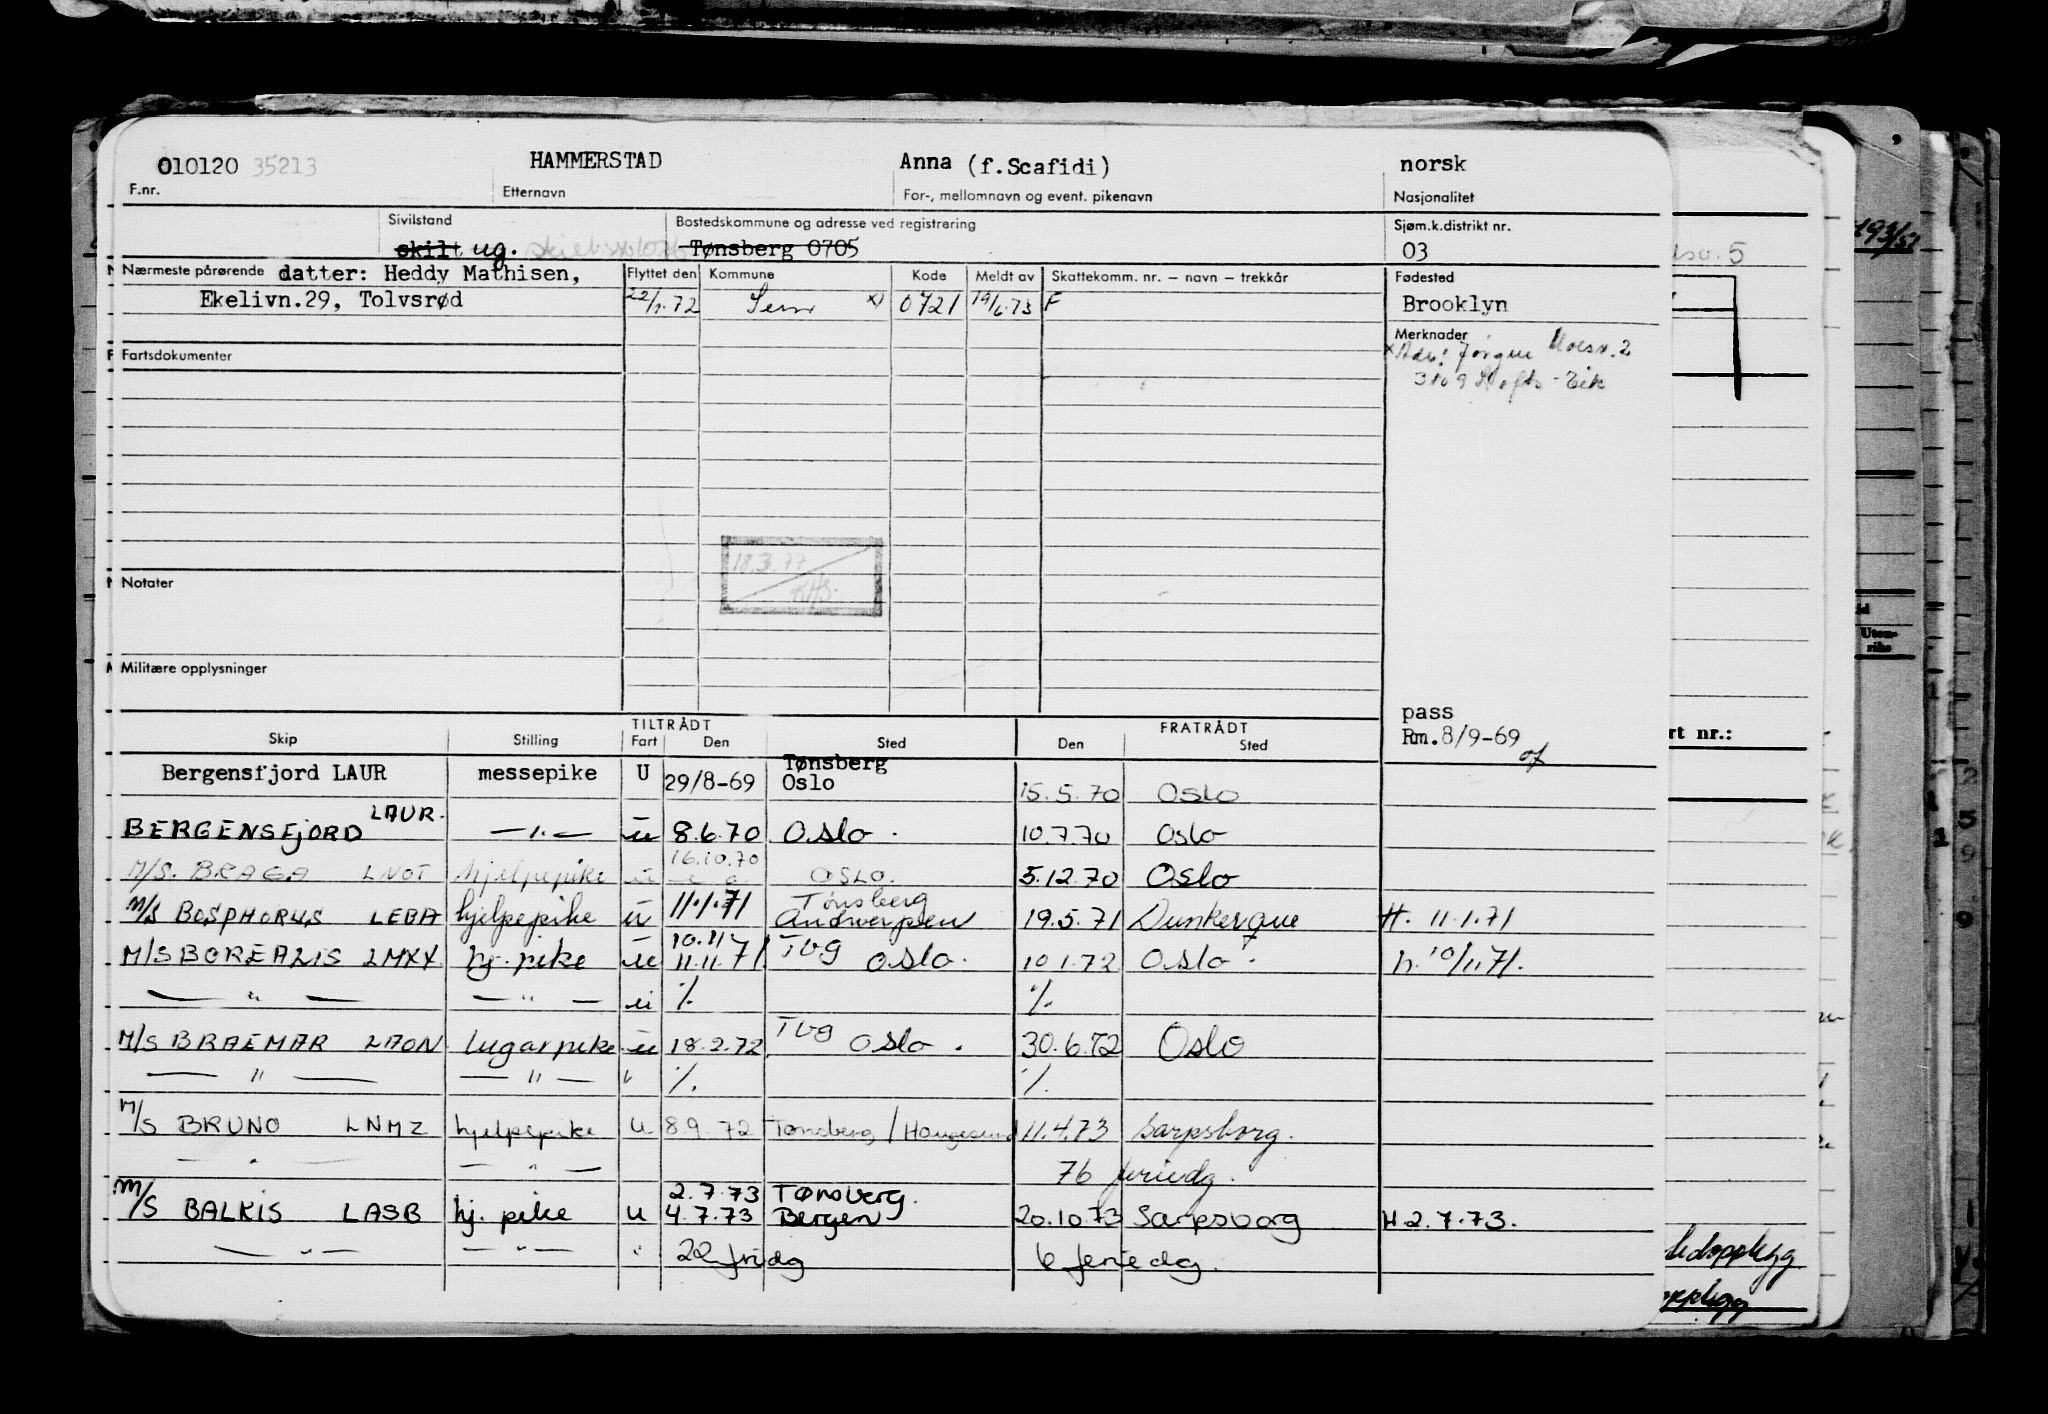 010120 35213 HAMMERSTAD Anna (f.Scafidi) norsk
F.nr. Etternavn For-, mellomnavn og event. pikenavn Nasjonalitet
Sivilstand Bostedskommune og adresse ved registrering Sjøm.k.distrikt nr.
skilt ug. Tønsberg 0705 03
Nærmeste pårørende datter: Heddy Mathisen, Flyttet den Kommune Kode Meldt av Skattekomm. nr. – navn – trekkår Fødested
Ekelivn.29, Tolvsrød 22/7.72 Sem x) 0721 19/6.73 F Brooklyn
Merknader
x Adr: Jørgen Moesv. 2
Fartsdokumenter
3109 - Eik
18.3.77
KHB.
Notater
Militære opplysninger
pass
Rm.8/9-69
TILTRÅDT FRATRÅDT
Skip Stilling Fart Den Sted Den Sted
Bergensfjord LAUR messepike U 29/8-69 Tønsberg Oslo 15.5.70 Oslo
BERGENSFJORD LAUR. — " — u 8.6.70 Oslo. 10.7.70 Oslo
M/S. BRAGA LNOT hjelpepike u 16.10.70 OSLO. 5.12.70 Oslo
M/S BOSPHORUS LEBA hjelpepike u 11.1.71 Tønsberg Andwerpen 19.5.71 Dunkerque H. 11.1.71
M/S BOREALIS LMXX hj. pike u 10.11 11.11.71 Tbg Oslo. 10.1.72 Oslo. h. 10/11.71.
— " — — " — u % %
M/S BRAEMAR LAON lugarpike u 18.2.72 Tbg Oslo. 30.6.72 Oslo
— " — — " — " % %
M/S BRUNO LNMZ hjelpepike u 8.9.72 Tønsberg/Haugesund 11.4.73 Sarpsborg.
— " — — " — 76 feriedg.
M/S BALKIS LASB hj. pike u 2.7.73 4.7.73 Tønsberg. Bergen 20.10.73 Sarpsborg H 2.7.73.
— " — — " — " 22 fridg 6 feriedg.
rt nr.:
Uten-
riks